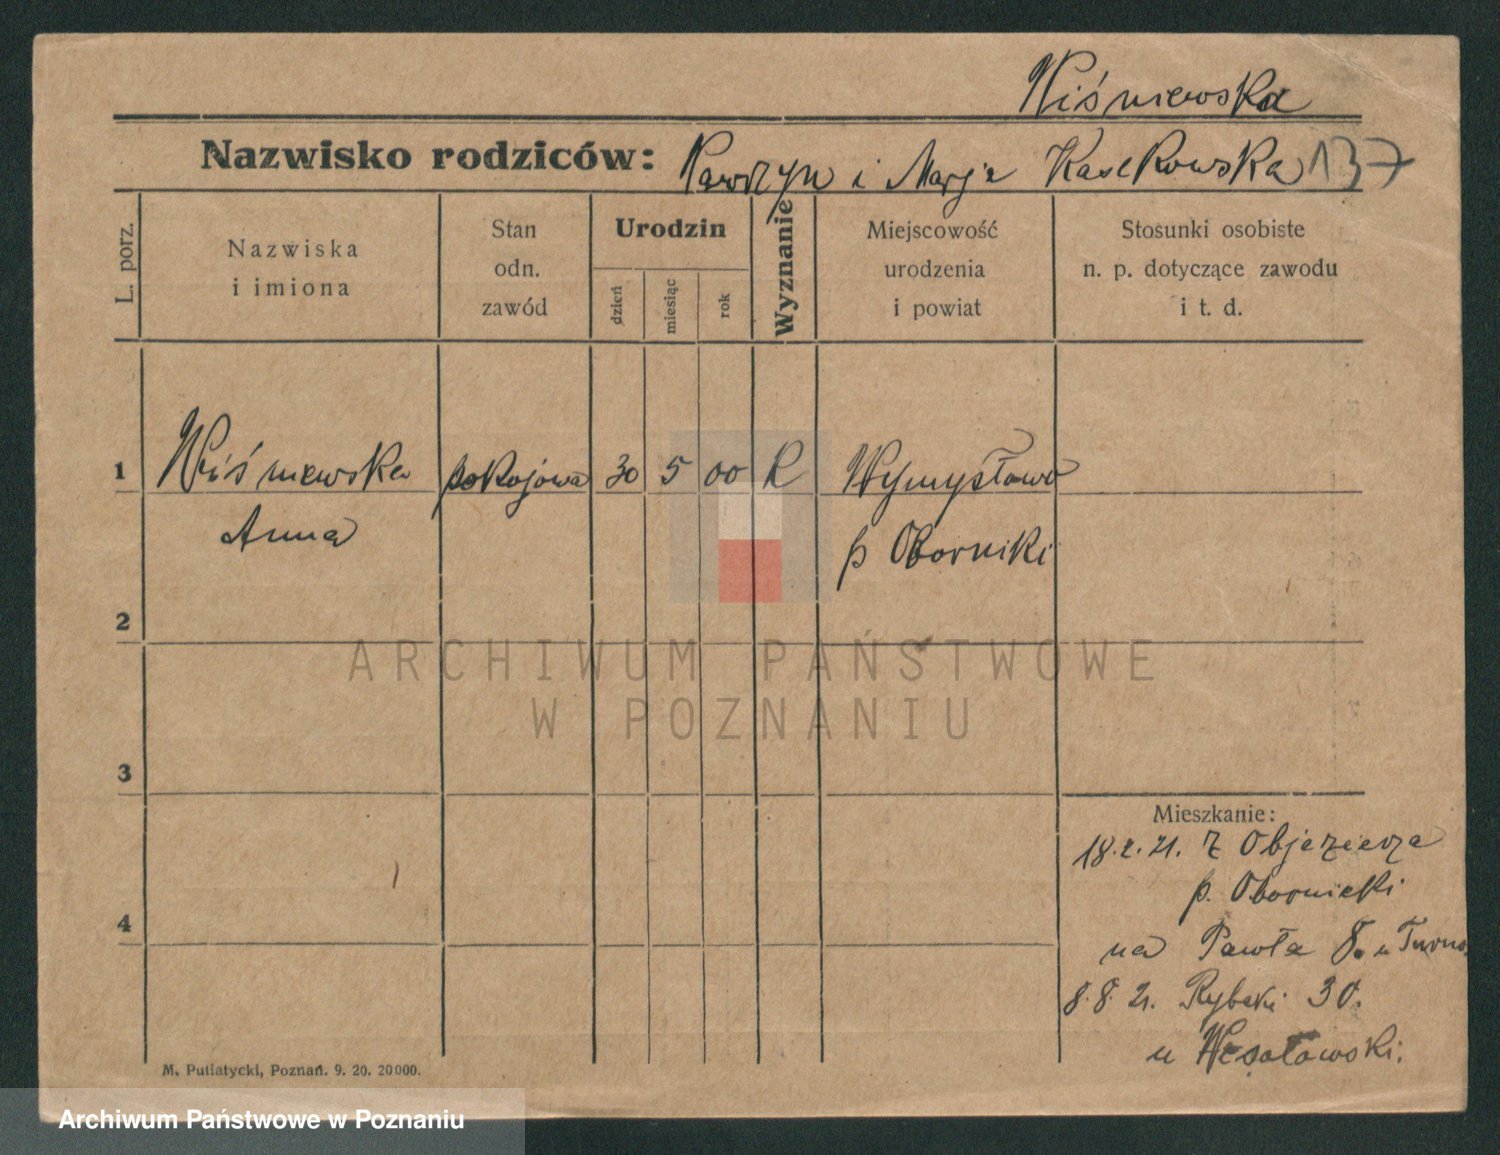 Wiśniewska
Nazwisko rodziców: Wawrzyn i Marja Kaczkowska 137
L. porz.
Nazwiska
i imiona
Stan
odn.
zawód
Urodzin
dzień
miesiąc
rok
Wyznanie
Miejscowość
urodzenia
i powiat
Stosunki osobiste
n. p. dotyczące zawodu
i t. d.
1 Wiśniewska pokojowa 30 5 00 R Wymysłowo
Anna p Oborniki
2
ARCHIWUM PAŃSTWOWE
W POZNANIU
3
Mieszkanie:
18.2.21. z Objezierza
p. Obornicki
4
na Pawła 8. u
8.8.21. Rybaki 30.
u Wesołowski.
M. Putiatycki, Poznań. 9. 20. 20000.
Archiwum Państwowe w Poznaniu